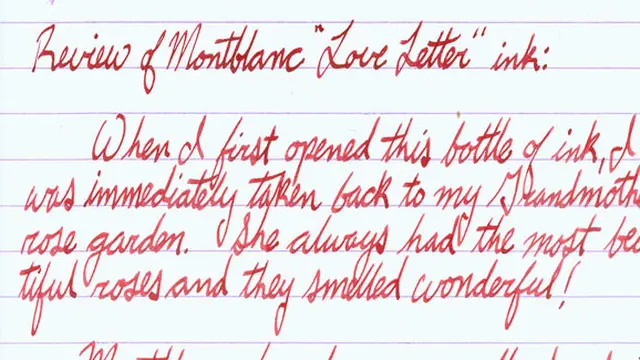 Review of Montblanc "Love Letter" ink:
When I first opened this bottle of ink, I
was immediately taken back to my Grandmothe
rose garden. She always had the most bea
tiful roses and they smelled wonderful!